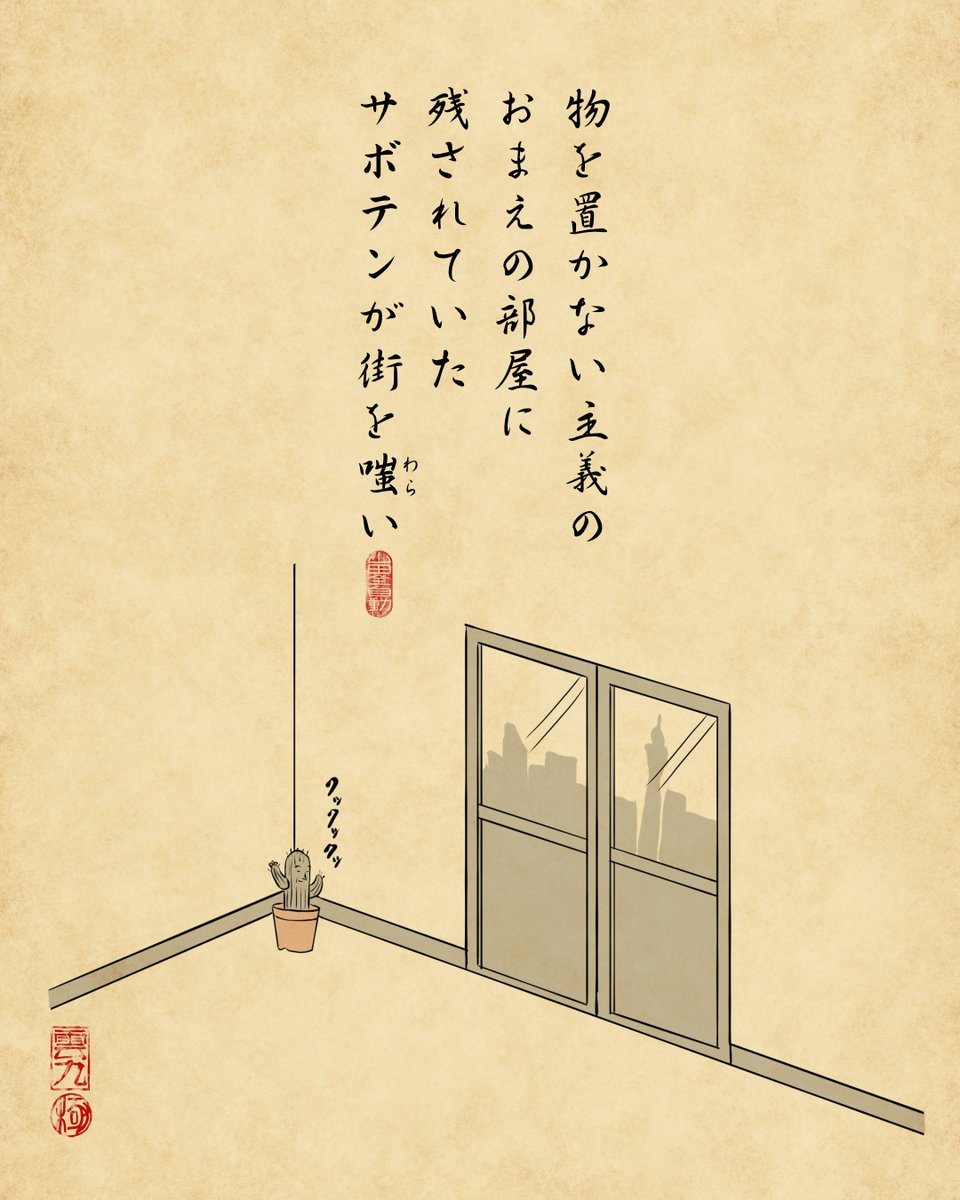 物を置かない主義の
おまえの部屋に
残されていた
サボテンが街を嗤い
わら
クックックッ